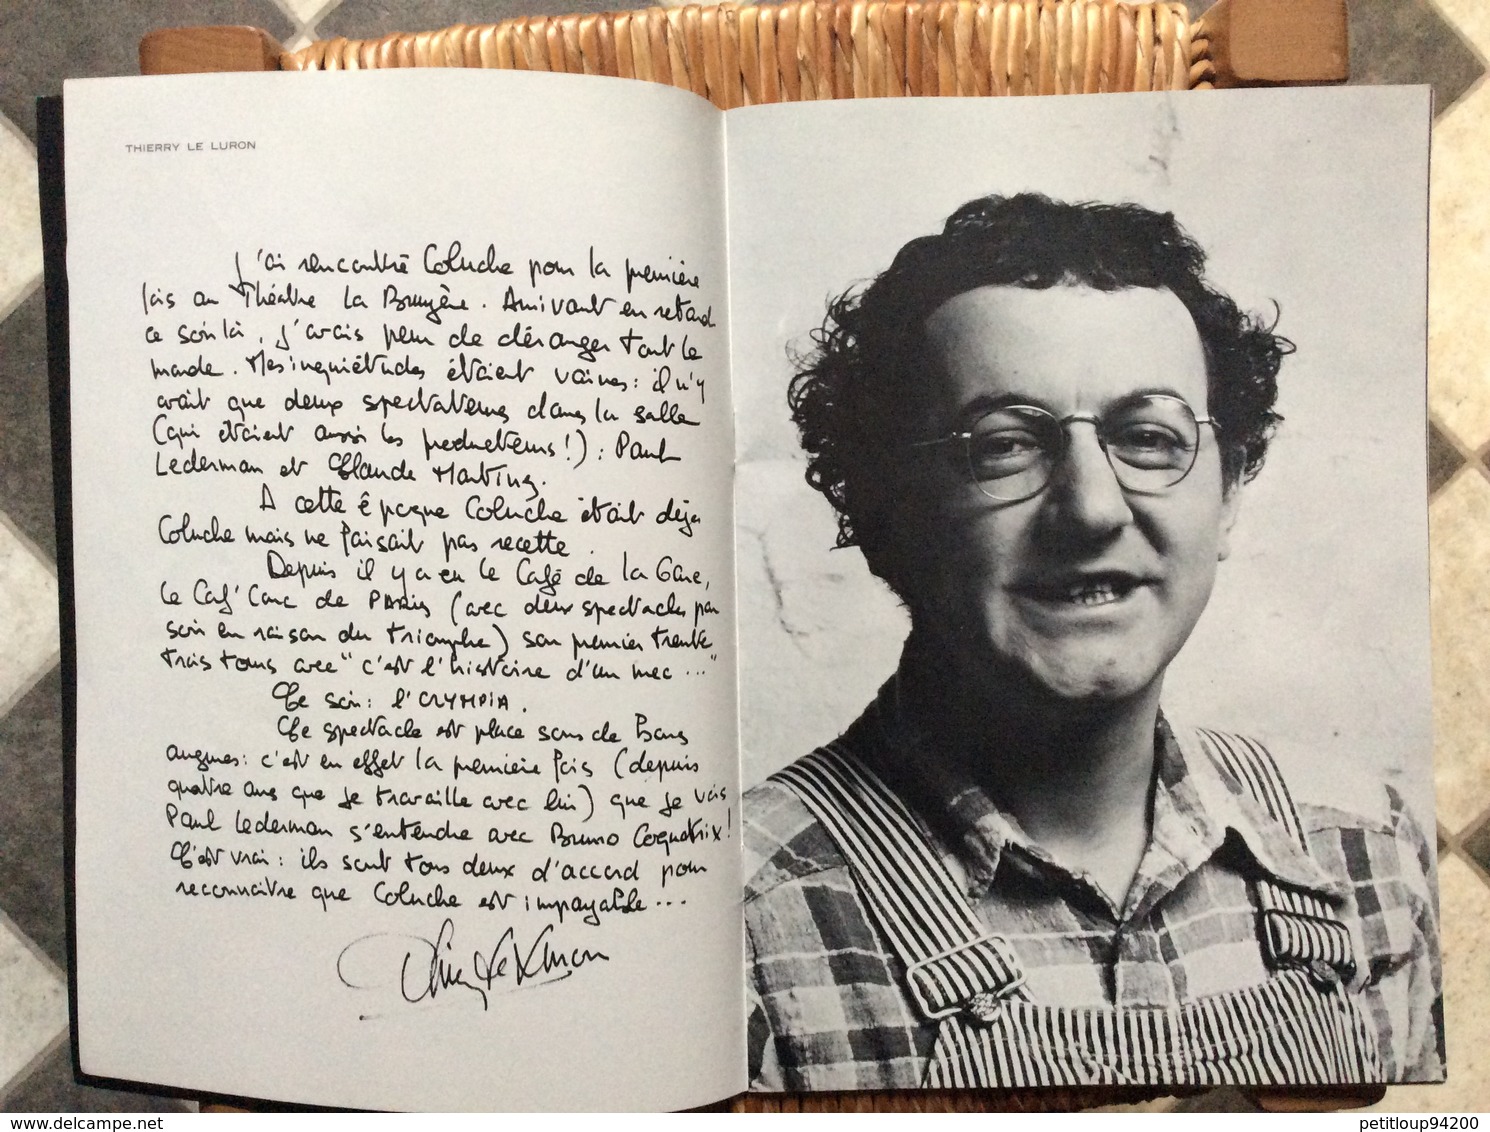 THIERRY LE LURON
J'ai rencontré Coluche pour la première
fois au Théâtre La Bruyère. Arrivant en retard
ce soir là, j'avais peur de déranger tout le
monde. Mes inquiétudes étaient vaines : il n'y
avait que deux spectateurs dans la salle
(qui étaient aussi les producteurs !) : Paul
Lederman et Claude Martinez.
A cette époque Coluche était déjà
Coluche mais ne faisait pas recette.
Depuis il y a eu le Café de la Gare,
le Caf' Conc de PARis (avec deux spectacles par
soir en raison du triomphe) son premier trente
trois tours avec "c'est l'histoire d'un mec ..."
Ce soir : l'OLYMPiA.
Ce spectacle est placé sous de bons
augures : c'est en effet la première fois (depuis
quatre ans que je travaille avec lui) que je vois
Paul Lederman s'entendre avec Bruno Coquatrix !
C'est vrai : ils sont tous deux d'accord pour
reconnaître que Coluche est impayable ...
Thierry Le Luron
www.delcampe.net
petitloup94200